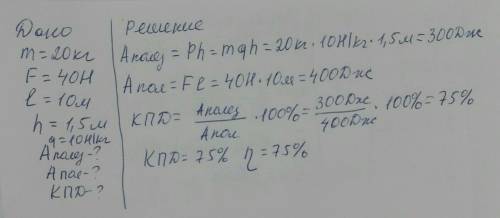 Дано
m = 20кг
F = 40Н
ℓ = 10м
h = 1,5м
g = 10Н/кг
Аполез-?
Апол-?
КПД-?
Решение
Аполез = Ph = mgh = 20кг · 10Н/кг · 1,5м = 300Дж
Апол = Fℓ = 40Н · 10м = 400Дж
КПД = Аполез/Апол · 100% = 300Дж/400Дж · 100% = 75%
КПД = 75% η = 75%